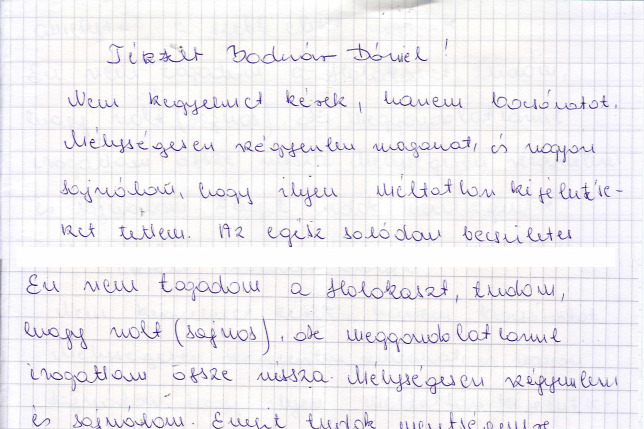 Tisztelt Bodnár Dániel!
Nem kegyelmet kérek, hanem bocsánatot.
Mélységesen szégyenlem magamat, és nagyon
sajnálom, hogy ilyen méltatlan kijelentése-
ket tettem. Az egész családom becsületes
Én nem tagadom a Holokaszt, tudom,
hogy volt (sajnos), de meggondolatlanul
írogattam össze vissza. Mélységesen szégyenlem
és sajnálom. Ennyit tudok mentségemre